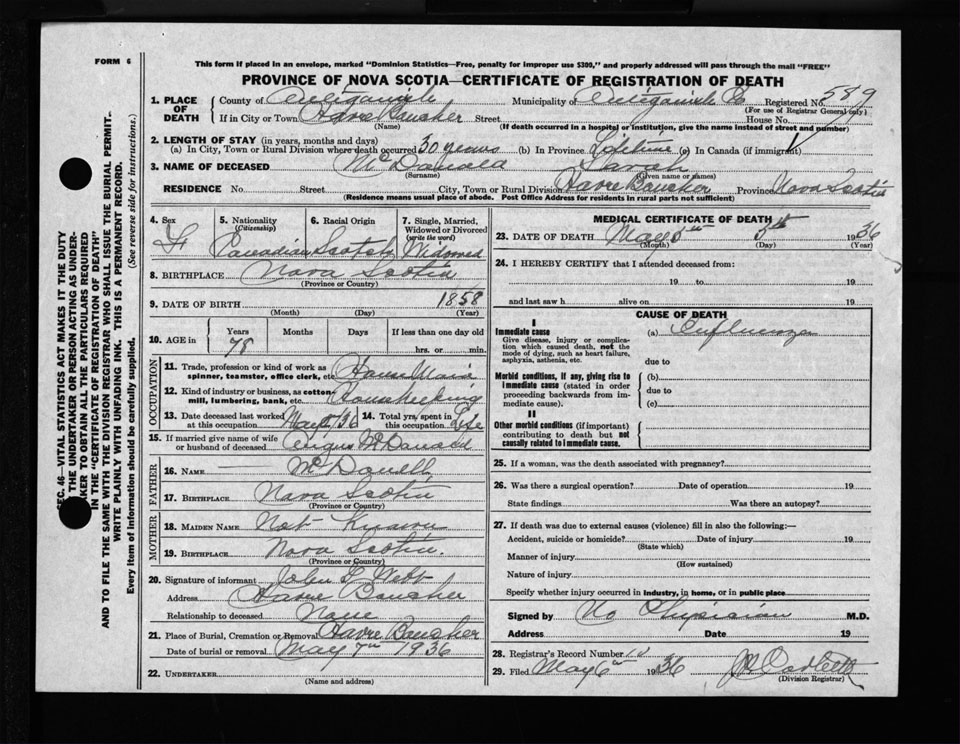 FORM 6
This form if placed in an envelope, marked "Dominion Statistics—Free, penalty for improper use $300," and properly addressed will pass through the mail "FREE"
PROVINCE OF NOVA SCOTIA—CERTIFICATE OF REGISTRATION OF DEATH
1. PLACE OF DEATH County of Antigonish Municipality of Antigonish Co Registered No. 589
(For use of Registrar General only)
If in City or Town Havre Boucher Street House No.
(Name) (If death occurred in a hospital or institution, give the name instead of street and number)
2. LENGTH OF STAY (in years, months and days)
(a) In City, Town or Rural Division where death occurred 50 years (b) In Province Lifetime (c) In Canada (if immigrant)
3. NAME OF DECEASED McDonald Sarah
(Surname) (Given name or names)
RESIDENCE No. Street City, Town or Rural Division Havre Boucher Province Nova Scotia
(Residence means usual place of abode. Post Office Address for residents in rural parts not sufficient)
4. Sex F
5. Nationality (Citizenship) Canadian
6. Racial Origin Scotch
7. Single, Married, Widowed or Divorced (write the word) Widowed
8. BIRTHPLACE Nova Scotia
(Province or Country)
9. DATE OF BIRTH 1858
(Month) (Day) (Year)
10. AGE in Years 78 Months Days If less than one day old
hrs. or min.
OCCUPATION
11. Trade, profession or kind of work as spinner, teamster, office clerk, etc. House Maid
12. Kind of industry or business, as cotton-mill, lumbering, bank, etc. Housekeeping
13. Date deceased last worked at this occupation May 5/36 14. Total yrs. spent in this occupation Life
15. If married give name of wife or husband of deceased Angus McDonald
FATHER
16. NAME McDonell
17. BIRTHPLACE Nova Scotia
(Province or Country)
MOTHER
18. MAIDEN NAME Not Known
19. BIRTHPLACE Nova Scotia.
(Province or Country)
20. Signature of informant John L Webb
Address Havre Boucher
Relationship to deceased None
21. Place of Burial, Cremation or Removal Havre Boucher
Date of burial or removal May 7th 1936
22. UNDERTAKER
(Name and address)
MEDICAL CERTIFICATE OF DEATH
23. DATE OF DEATH May 5th 5th 1936
(Month) (Day) (Year)
24. I HEREBY CERTIFY that I attended deceased from:
19 to 19
and last saw h alive on 19
CAUSE OF DEATH
I
Immediate cause (a) Influenza
Give disease, injury or complication which caused death, not the mode of dying, such as heart failure, asphyxia, asthenia, etc.
due to
Morbid conditions, if any, giving rise to immediate cause (stated in order proceeding backwards from immediate cause). (b)
due to
(c)
II
Other morbid conditions (if important) contributing to death but not causally related to immediate cause.
25. If a woman, was the death associated with pregnancy?
26. Was there a surgical operation? Date of operation 19
State findings Was there an autopsy?
27. If death was due to external causes (violence) fill in also the following:—
Accident, suicide or homicide? Date of injury 19
(State which)
Manner of injury
(How sustained)
Nature of injury
Specify whether injury occurred in industry, in home, or in public place
Signed by No Physician M.D.
Address Date 19
28. Registrar's Record Number
29. Filed May 6th 1936
(Division Registrar)
SEC. 46—VITAL STATISTICS ACT MAKES IT THE DUTY OF THE UNDERTAKER OR PERSON ACTING AS UNDERTAKER TO OBTAIN ALL THE PARTICULARS REQUIRED IN THE "CERTIFICATE OF DEATH"
AND TO FILE THE SAME WITH THE DIVISION REGISTRAR WHO SHALL ISSUE THE BURIAL PERMIT.
WRITE PLAINLY WITH UNFADING INK. THIS IS A PERMANENT RECORD.
Every item of information should be carefully supplied. (See reverse side for instructions.)